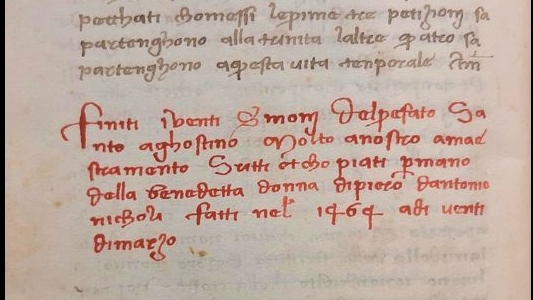 pechati chomessi lepime tre petizioni sa
partenghono alla trinita laltre quatro sa
partenghono aquesta vita tenporale Am̅
Finiti iventi Sermonj Delpefato Sa
nto aghostino Molto anostro amae
stramento Scritti echopiati permano
della benedetta donna dipiero dantonio
nicholi fatti nel 1464 adi venti
dimarzo